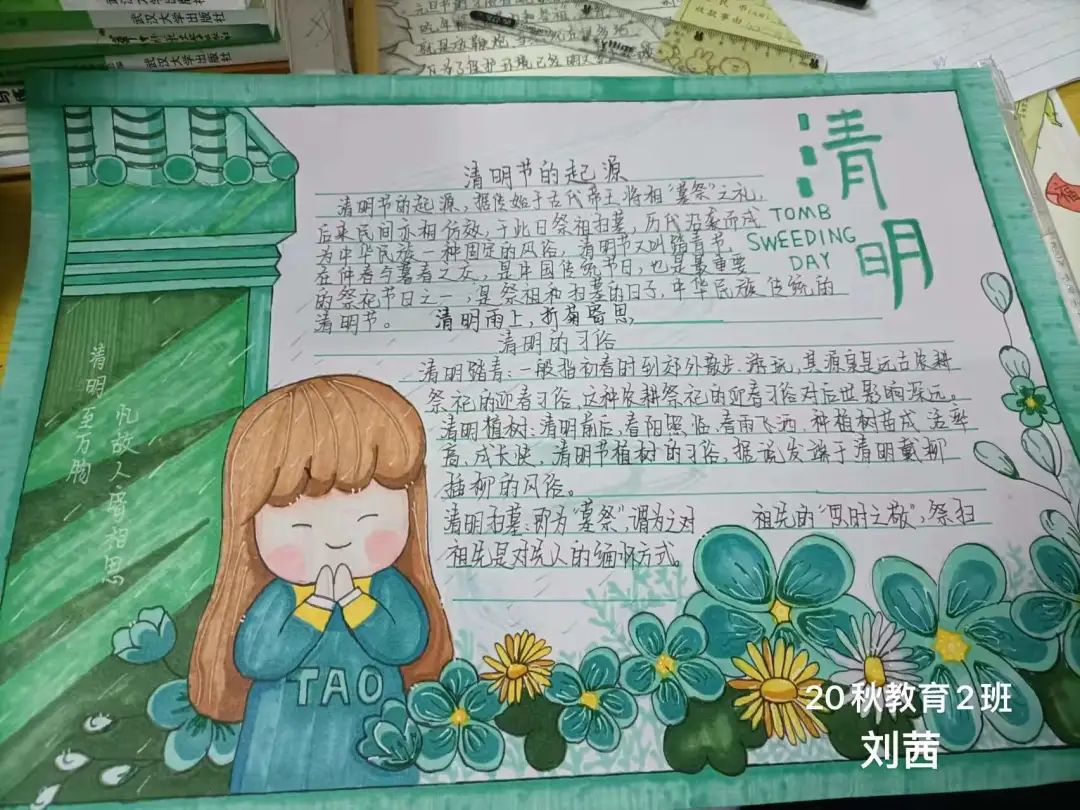 武汉大学出版社
武汉大学出版社
武汉大学出版社
清明
TOMB
SWEEDING
DAY
清明节的起源
清明节的起源，据传始于古代帝王将相“墓祭”之礼，
后来民间亦相仿效，于此日祭祖扫墓，历代沿袭而成
为中华民族一种固定的风俗，清明节又叫踏青节，
在仲春与暮春之交，是中国传统节日，也是最重要
的祭祀节日之一，是祭祖和扫墓的日子，中华民族传统的
清明节。 清明雨上，折菊寄思，
清明的习俗
清明踏青：一般指初春时到郊外散步、游玩，其源泉是远古农耕
祭祀的迎春习俗，这种农耕祭祀的迎春习俗对后世影响深远。
清明植树：清明前后，春阳照临，春雨飞洒，种植树苗成活率
高，成长快，清明节植树的习俗，据说发端于清明戴柳
插柳的风俗。
清明扫墓：即为“墓祭”，谓为之对 祖先的“思时之敬”，祭扫
祖先是对先人的缅怀方式。
清明至万物
忆故人寄相思
TAO
20秋教育2班
刘茜